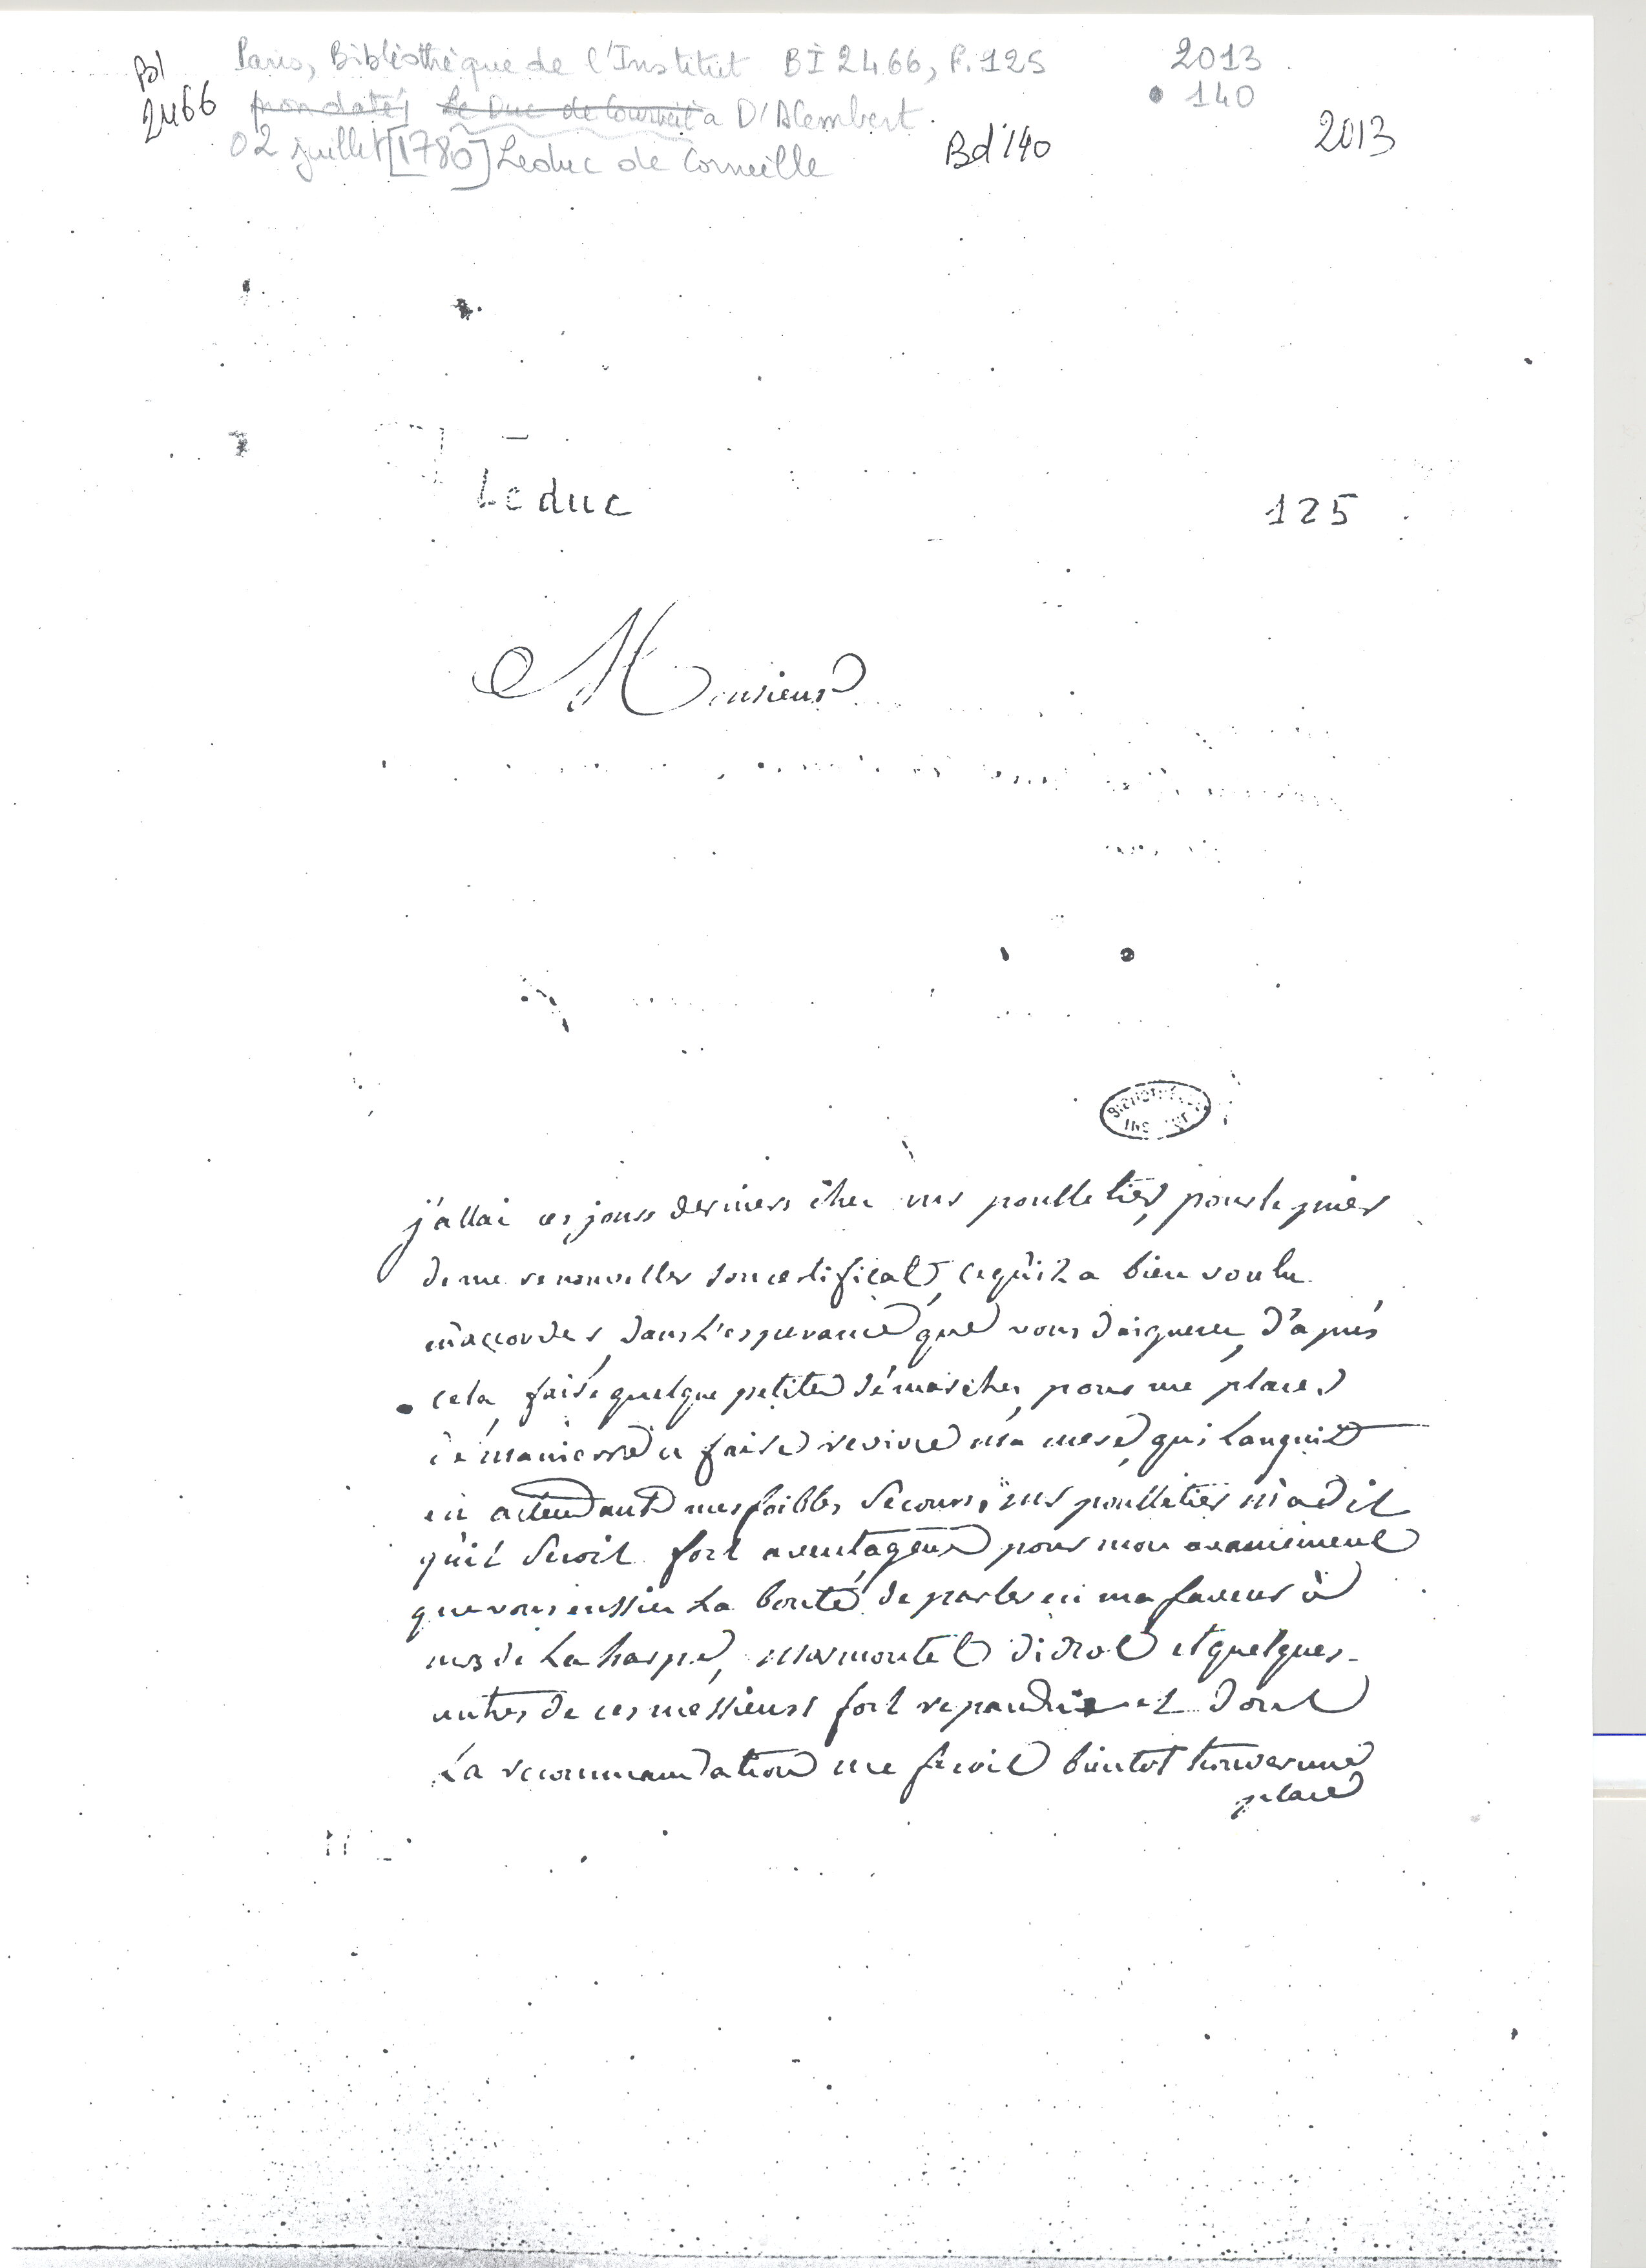 Paris, Bibliothèque de l'Institut BI 2466, f. 125 2013
Bd 2466 (non daté) Le Duc de Courneil a D'Alembert. 140
02 juillet [1780] Leduc de Corneille Bd 140 2013
Leduc 125
Monsieur
BIBLIOTHÈQUE INSTITUT
j'allai ces jours derniers chez mr poulletier, pour le prier
de me renouveller son certificat, ce qu'il a bien voulu
m'accorder, dans l'esperance que vous daignerez, d'après
cela, faire quelque petite démarche, pour me placer
de maniere à faire revivre ma mere, qui languit
en attendant mes foibles secours, mr poulletier m'a dit
qu'il seroit fort aventageux, pour mon avancement
que vous eussiez la bonté, de parler en ma faveur à
mrs de la harpe, marmontel didrot et quelques
autres de ces messieurs fort repandus et dont
la recommandation me feroit bientot trouver une
place